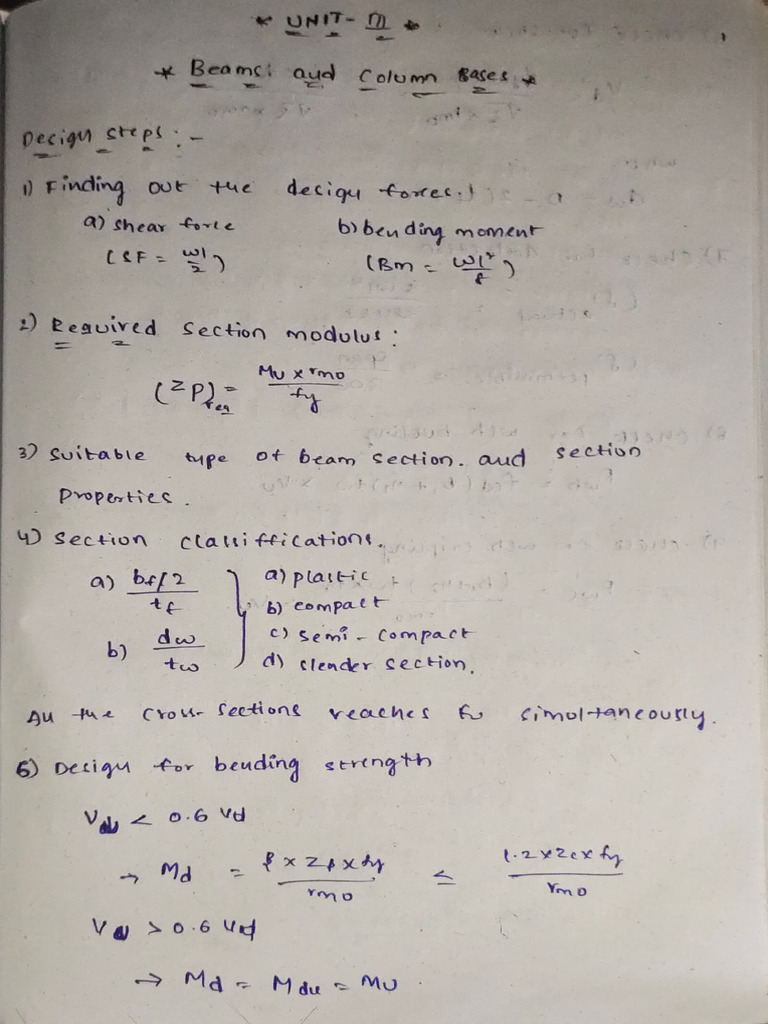 * UNIT - III *
* Beams: and column Bases *
Design steps : -
1) Finding out the design forces.
a) shear force b) bending moment
(SF = wl/2) (Bm = wl²/8)
2) Required section modulus :
(ZP)req = Mu x rmo / fy
3) Suitable type of beam section. and section
properties.
4) section classiffications.
a) bf/2 / tf a) plastic
b) compact
b) dw / tw c) semi - compact
d) slender section.
All the cross-sections reaches fu simoltaneously.
5) Design for bending strength
V < 0.6 Vd
→ Md = β x Zp x fy / rmo ≤ 1.2 x Ze x fy / rmo
V > 0.6 Vd
→ Md = Mdv = Mu